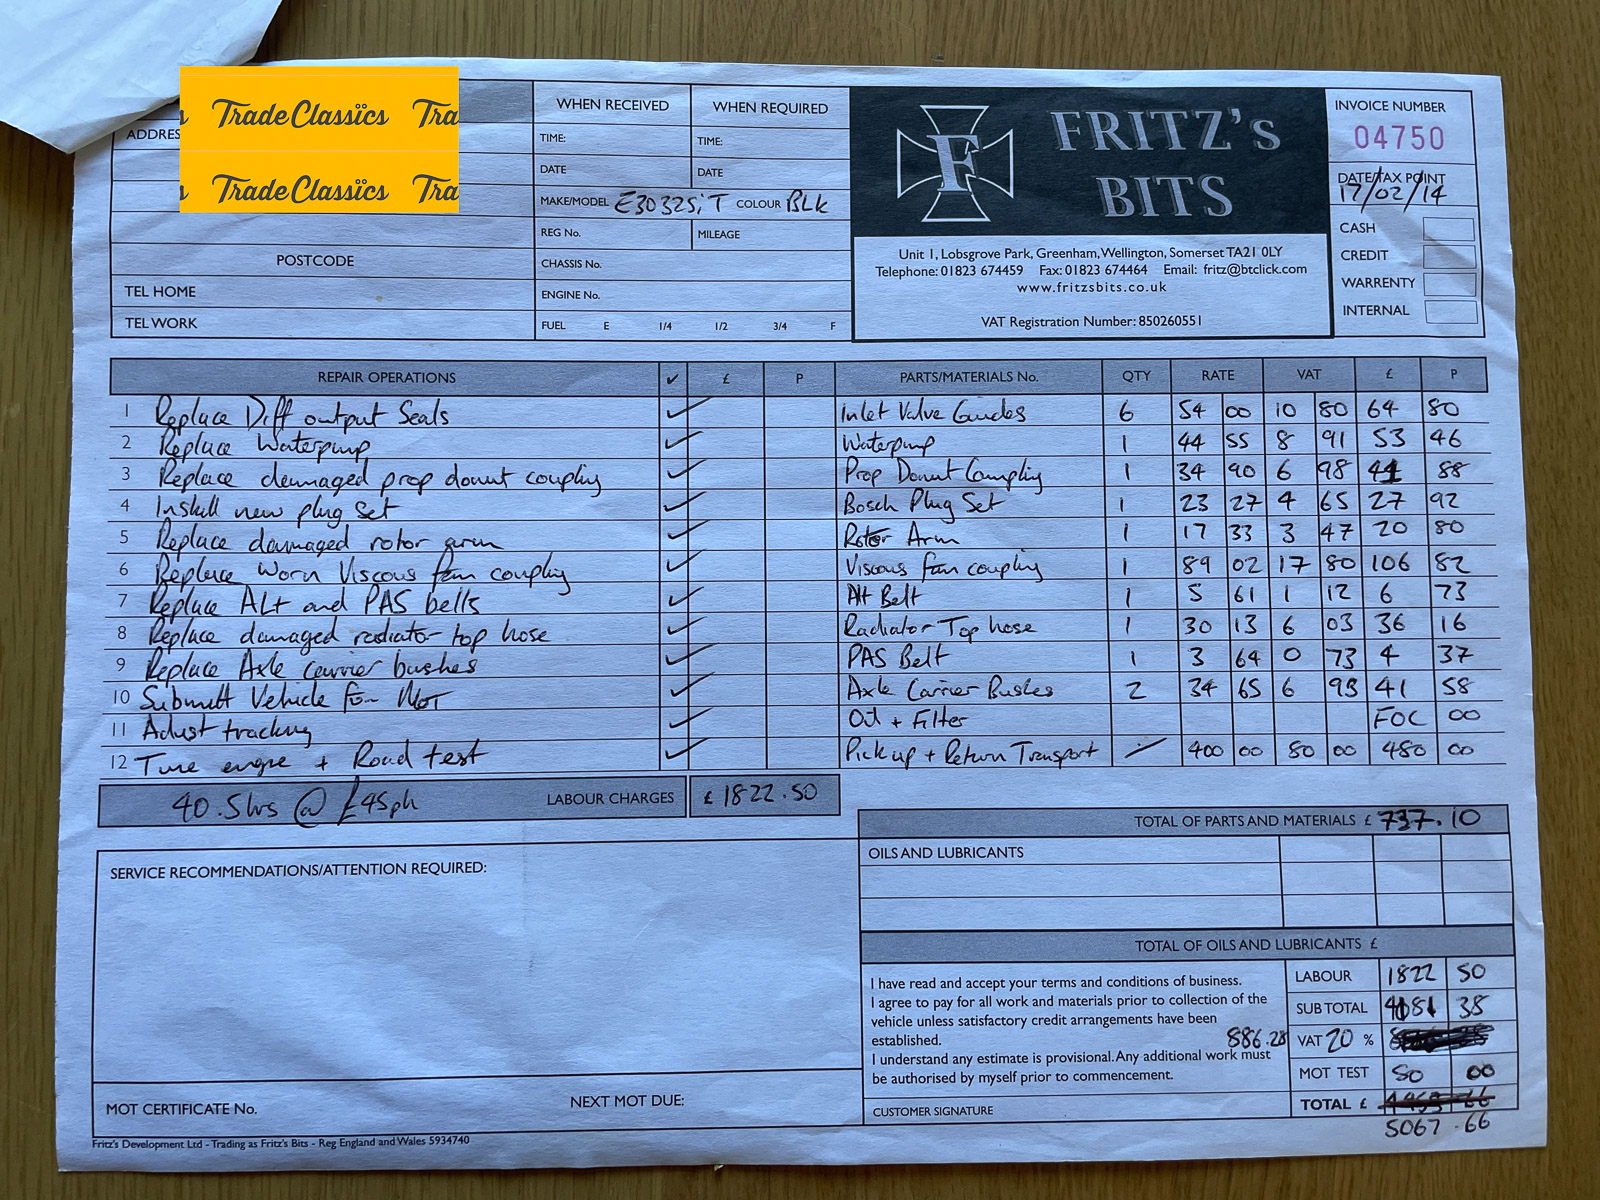 TradeClassics Tra
TradeClassics Tra
WHEN RECEIVED WHEN REQUIRED
TIME: TIME:
DATE DATE
MAKE/MODEL E30325iT COLOUR BLK
REG No. MILEAGE
CHASSIS No.
ENGINE No.
FUEL E 1/4 1/2 3/4 F
POSTCODE
TEL HOME
TEL WORK
F
FRITZ's
BITS
Unit 1, Lobsgrove Park, Greenham, Wellington, Somerset TA21 0LY
Telephone: 01823 674459 Fax: 01823 674464 Email: fritz@btclick.com
www.fritzsbits.co.uk
VAT Registration Number: 850260551
INVOICE NUMBER
04750
DATE/TAX POINT
17/02/14
CASH
CREDIT
WARRENTY
INTERNAL
REPAIR OPERATIONS ✓ £ P
1 Replace Diff output Seals ✓
2 Replace Waterpump ✓
3 Replace damaged prop donut coupling ✓
4 Install new plug set ✓
5 Replace damaged rotor arm ✓
6 Replace Worn Viscous fan coupling ✓
7 Replace ALT and PAS belts ✓
8 Replace damaged radiator top hose ✓
9 Replace Axle carrier bushes ✓
10 Submitt Vehicle for MOT ✓
11 Adjust tracking ✓
12 Tune engine + Road test ✓
40.5hrs @ £45ph LABOUR CHARGES £ 1822.50
PARTS/MATERIALS No. QTY RATE VAT £ P
Inlet Valve Guides 6 54 00 10 80 64 80
Waterpump 1 44 55 8 91 53 46
Prop Donut Coupling 1 34 90 6 98 41 88
Bosch Plug Set 1 23 27 4 65 27 92
Rotor Arm 1 17 33 3 47 20 80
Viscous fan coupling 1 89 02 17 80 106 82
Alt Belt 1 5 61 1 12 6 73
Radiator Top hose 1 30 13 6 03 36 16
PAS Belt 1 3 64 0 73 4 37
Axle Carrier Bushes 2 34 65 6 93 41 58
Oil + Filter FOC 00
Pick up + Return Transport 400 00 80 00 480 00
TOTAL OF PARTS AND MATERIALS £ 737.10
OILS AND LUBRICANTS
TOTAL OF OILS AND LUBRICANTS £
SERVICE RECOMMENDATIONS/ATTENTION REQUIRED:
MOT CERTIFICATE No. NEXT MOT DUE:
I have read and accept your terms and conditions of business.
I agree to pay for all work and materials prior to collection of the
vehicle unless satisfactory credit arrangements have been
established.
I understand any estimate is provisional. Any additional work must
be authorised by myself prior to commencement.
CUSTOMER SIGNATURE
LABOUR 1822 50
SUB TOTAL 4181 38
886.28 VAT 20 %
MOT TEST 50 00
TOTAL £
5067.66
Fritz's Development Ltd - Trading as Fritz's Bits - Reg England and Wales 5934740